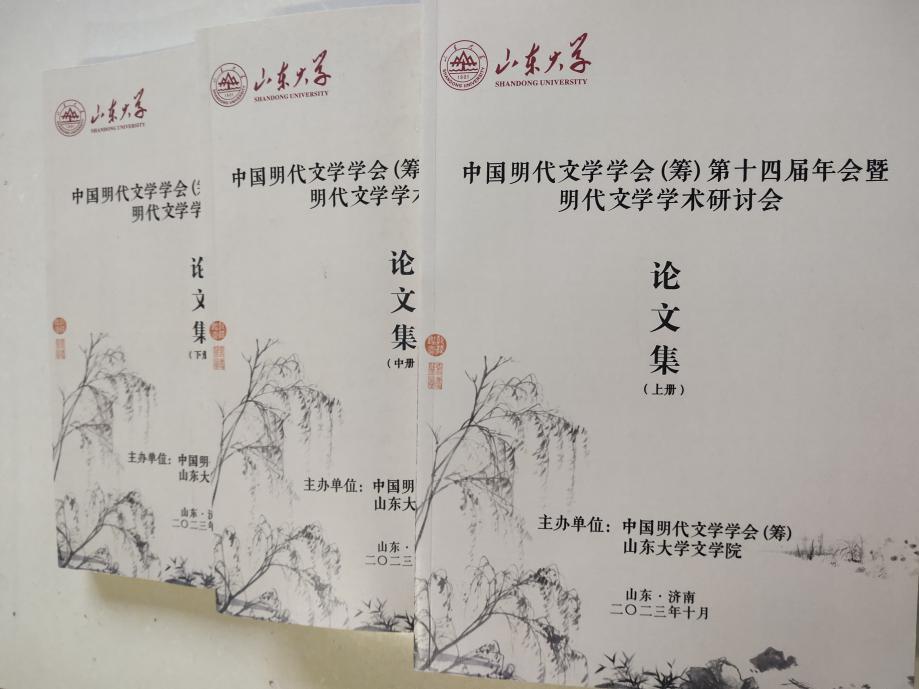 山东大学
SHANDONG UNIVERSITY
中国明代文学学会(
明代文学学
论
文
集
(下册
主办单位：中国明
山东大
山东·济
二〇二三年
山东大学
SHANDONG UNIVERSITY
中国明代文学学会(筹
明代文学学术
论
文
集
(中册
主办单位：中国明
山东大
山东·
二〇二三
山东大学
SHANDONG UNIVERSITY
1901
中国明代文学学会(筹)第十四届年会暨
明代文学学术研讨会
论
文
集
(上册)
主办单位：中国明代文学学会(筹)
山东大学文学院
山东·济南
二〇二三年十月